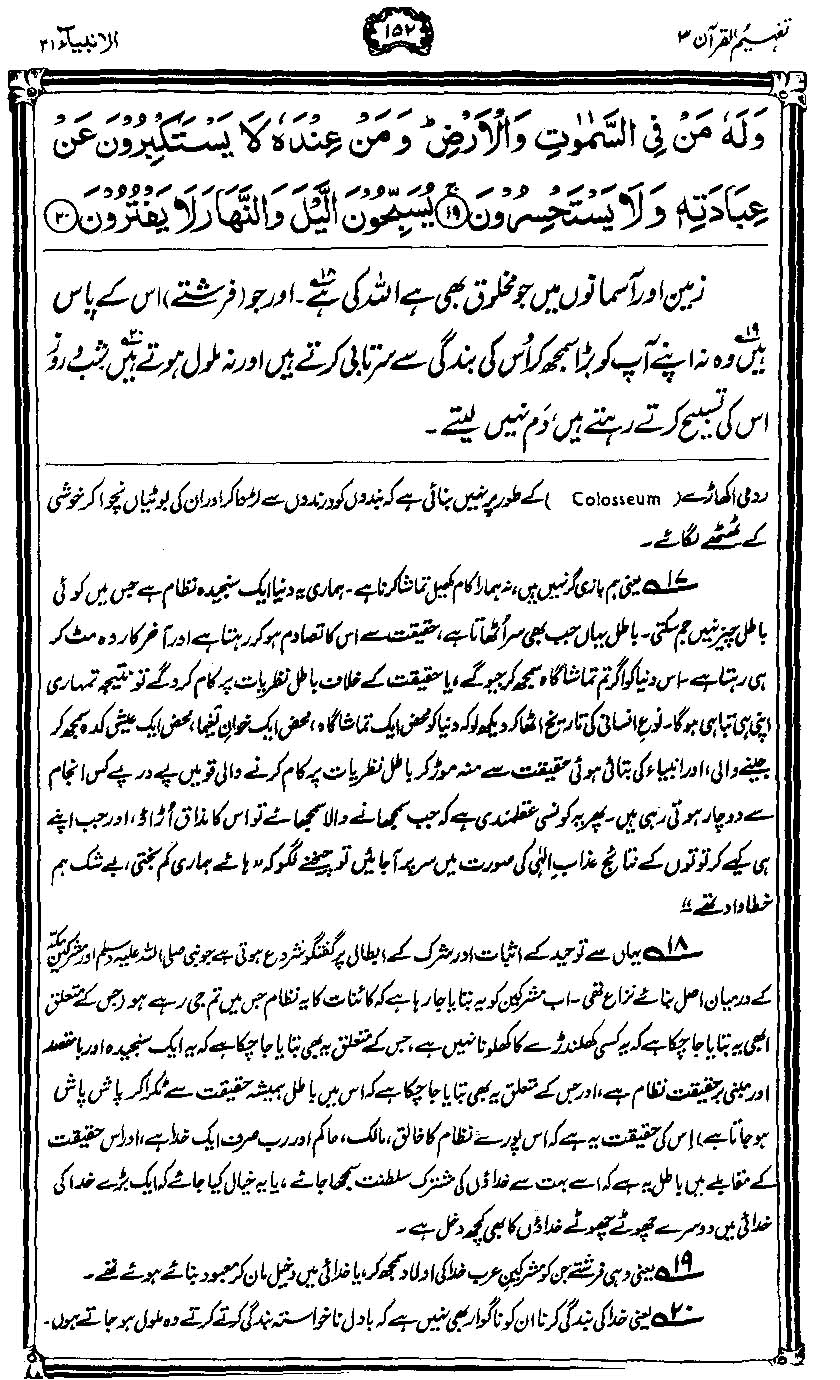 تفہیم القرآن ۳
۱۵۲
الانبیاء ۲۱
وَلَهٗ مَنْ فِي السَّمٰوٰتِ وَالْاَرْضِ ؕ وَمَنْ عِنْدَهٗ لَا يَسْتَكْبِرُوْنَ عَنْ
عِبَادَتِهٖ وَلَا يَسْتَحْسِرُوْنَ ۚ ﴿۱۹﴾ يُسَبِّحُوْنَ الَّيْلَ وَالنَّهَارَ لَا يَفْتُرُوْنَ ﴿۲۰﴾
زمین اور آسمانوں میں جو مخلوق بھی ہے اللہ کی ہے۱۸۔ اور جو (فرشتے) اس کے پاس
ہیں۱۹ وہ نہ اپنے آپ کو بڑا سمجھ کر اُس کی بندگی سے سرتابی کرتے ہیں اور نہ ملول ہوتے ہیں۲۰۔ شب و روز
اس کی تسبیح کرتے رہتے ہیں، دَم نہیں لیتے۔
رومی اکھاڑے (Colosseum) کے طور پر نہیں بنائی ہے کہ بندوں کو درندوں سے لڑوا کر اور ان کی بوٹیاں نچوا کر خوشی
کے ٹھٹھے لگائے۔
۱۷ یعنی ہم بازی گر نہیں ہیں، نہ ہمارا کام کھیل تماشا کرنا ہے۔ ہماری یہ دنیا ایک سنجیدہ نظام ہے جس میں کوئی
باطل چیز نہیں جم سکتی۔ باطل یہاں جب بھی سر اُٹھاتا ہے، حقیقت سے اس کا تصادم ہو کر رہتا ہے اور آخر کار وہ مٹ کر
ہی رہتا ہے۔ اس دنیا کو اگر تم تماشا گاہ سمجھ کر جیو گے، یا حقیقت کے خلاف باطل نظریات پر کام کرو گے تو نتیجہ تمہاری
اپنی ہی تباہی ہو گا۔ نوعِ انسانی کی تاریخ اٹھا کر دیکھ لو کہ دنیا کو محض ایک تماشا گاہ، محض ایک خوانِ یغما، محض ایک عیش کدہ سمجھ کر
جینے والی، اور انبیاء کی بتائی ہوئی حقیقت سے منہ موڑ کر باطل نظریات پر کام کرنے والی قومیں پے در پے کس انجام
سے دوچار ہوتی رہی ہیں۔ پھر یہ کونسی عقلمندی ہے کہ جب سمجھانے والا سمجھائے تو اس کا مذاق اُڑاؤ، اور جب اپنے
ہی کیے کرتوتوں کے نتائج عذابِ الٰہی کی صورت میں سر پر آجائیں تو چیخنے لگو کہ ”ہائے ہماری کم بختی، بے شک ہم
خطا وار تھے“
۱۸ یہاں سے توحید کے اثبات اور شرک کے ابطال پر گفتگو شروع ہوتی ہے جو نبی صلی اللہ علیہ وسلم اور مشرکینِ مکہ
کے درمیان اصل بنائے نزاع تھی۔ اب مشرکین کو یہ بتایا جا رہا ہے کہ کائنات کا یہ نظام جس میں تم جی رہے ہو (جس کے متعلق
ابھی یہ بتایا جا چکا ہے کہ یہ کسی کھلنڈرے کا کھلونا نہیں ہے، جس کے متعلق یہ بھی بتایا جا چکا ہے کہ یہ ایک سنجیدہ اور با مقصد
اور مبنی بر حقیقت نظام ہے، اور جس کے متعلق یہ بھی بتایا جا چکا ہے کہ اس میں باطل ہمیشہ حقیقت سے ٹکرا کر پاش پاش
ہو جاتا ہے) اِس کی حقیقت یہ ہے کہ اس پورے نظام کا خالق، مالک، حاکم اور رب صرف ایک خدا ہے، اور اس حقیقت
کے مقابلے میں باطل یہ ہے کہ اسے بہت سے خداؤں کی مشترک سلطنت سمجھا جائے، یا یہ خیال کیا جائے کہ ایک بڑے خدا کی
خدائی میں دوسرے چھوٹے چھوٹے خداؤں کا بھی کچھ دخل ہے۔
۱۹ یعنی وہی فرشتے جن کو مشرکینِ عرب خدا کی اولاد سمجھ کر، یا خدائی میں دخیل مان کر معبود بنائے ہوئے تھے۔
۲۰ یعنی خدا کی بندگی کرنا ان کو ناگوار بھی نہیں ہے کہ بادل ناخواستہ بندگی کرتے کرتے وہ ملول ہو جاتے ہوں۔